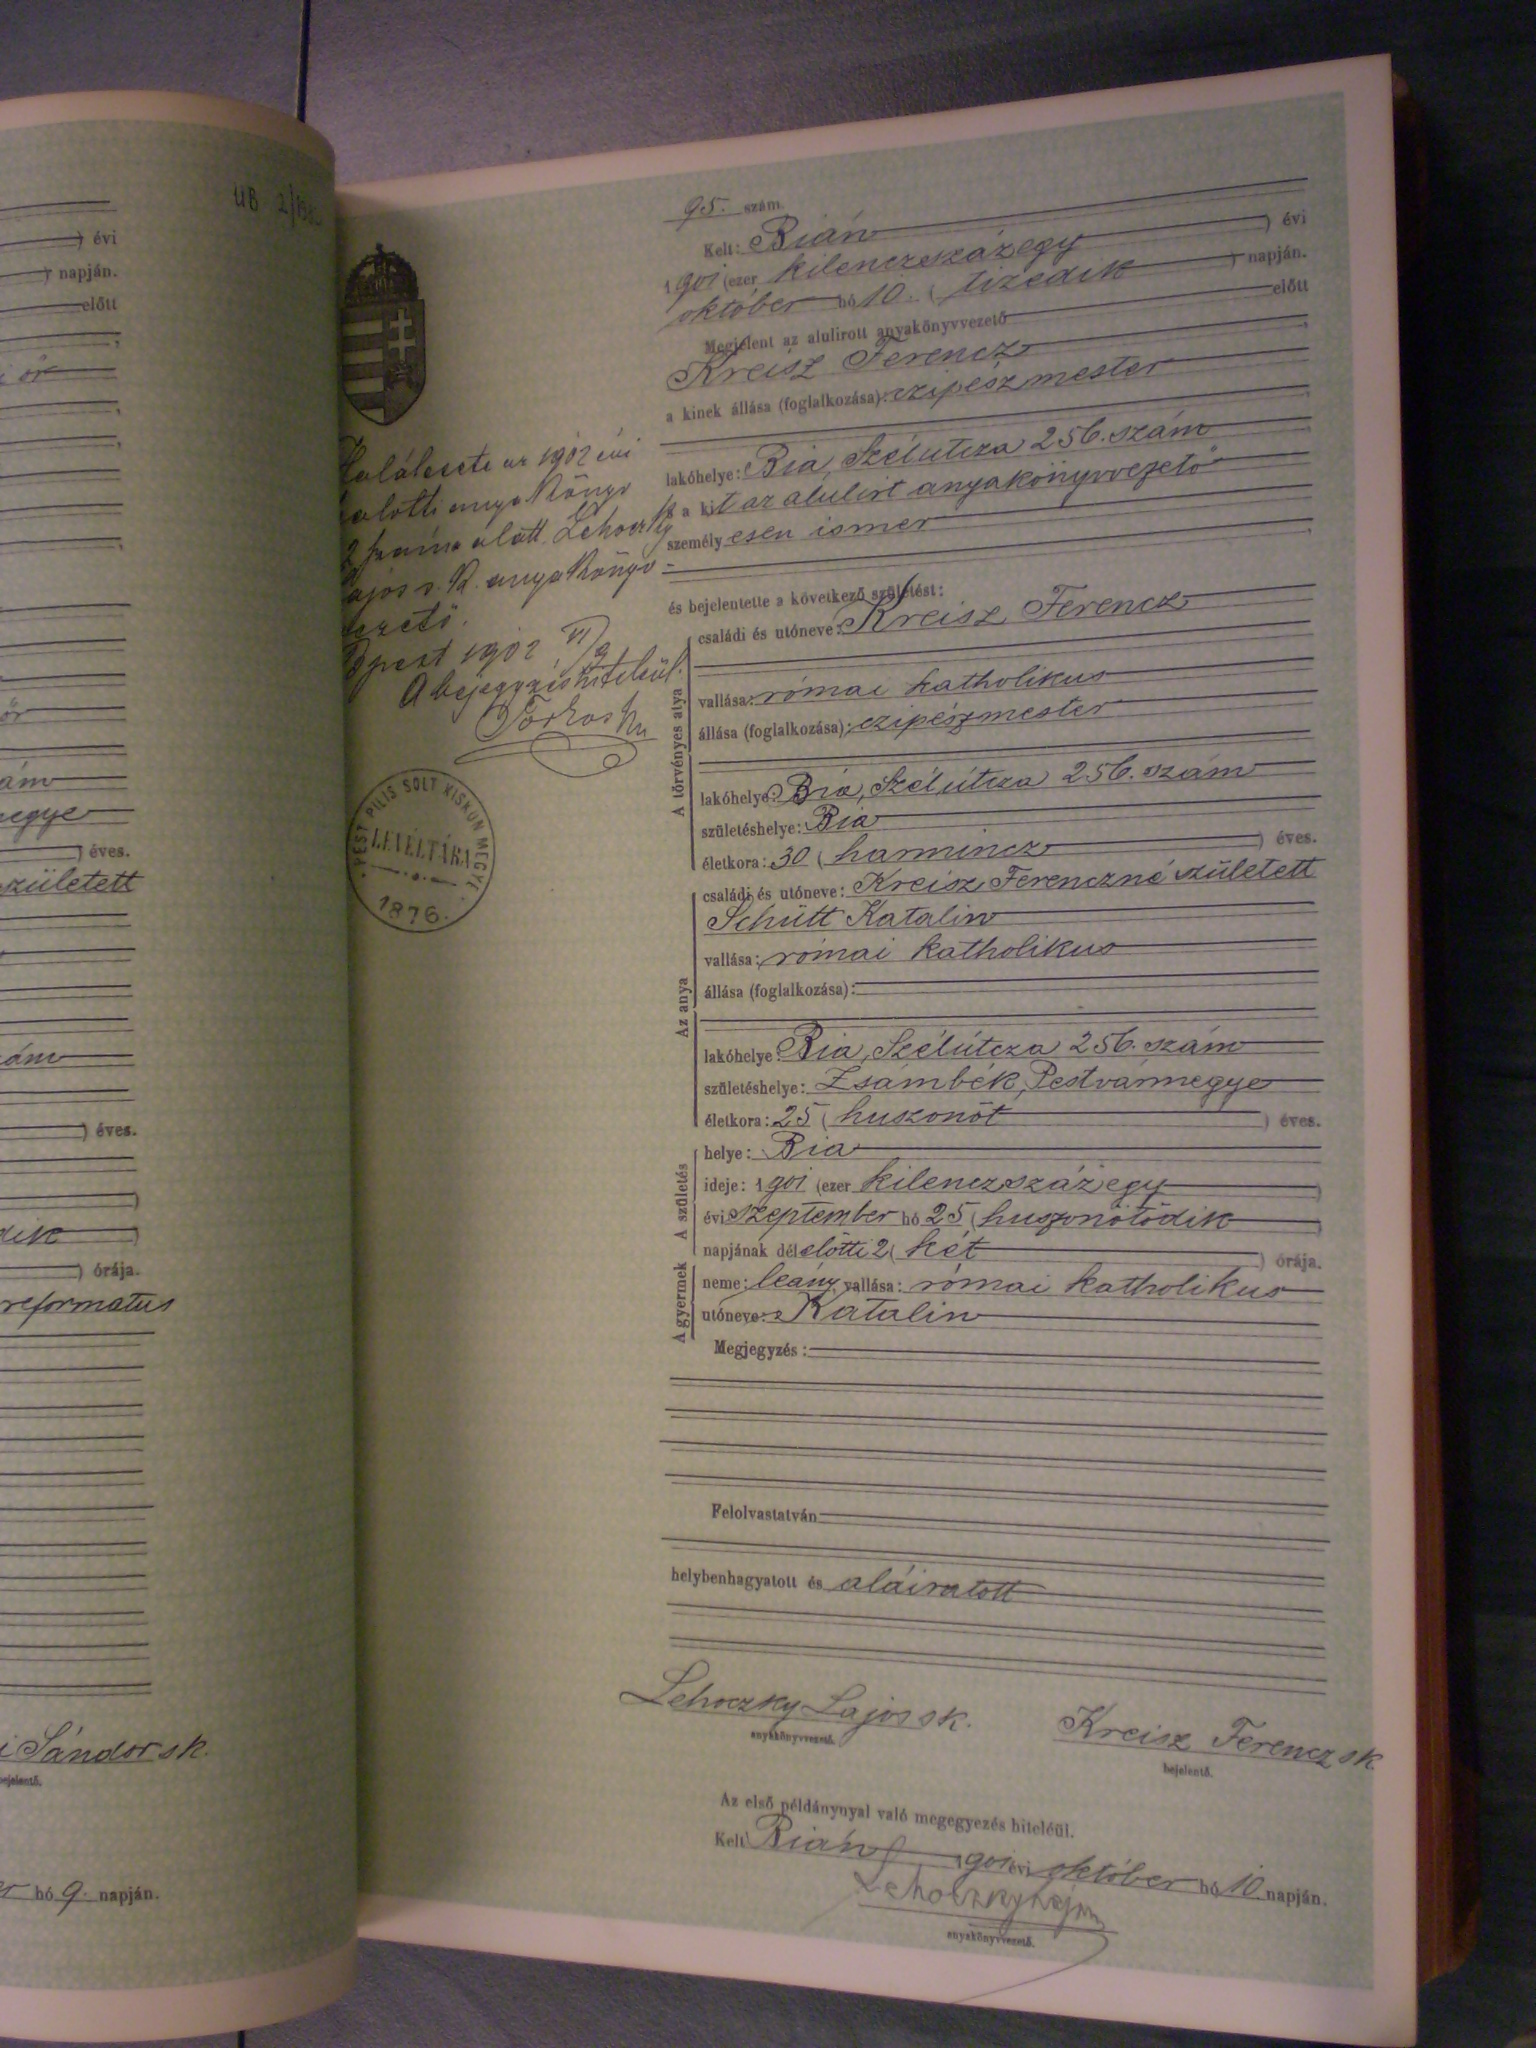 UB 2/198
évi
napján.
előtt
ör
ör
ám
egye
éves.
született
ám
éves.
dik
órája.
reformatus
i Sándor sk.
bejelentő.
er hó 9. napján.
Halálesete az 1902 évi
halotti anyakönyv
2 száma alatt. Lehoczky
Lajos s. k. anyakönyv-
vezető.
Bpest 1902 VI/9
A bejegyzés hiteléül.
PEST PILIS SOLT KISKUN MEGYE
LEVÉLTÁRA
1876.
95. szám.
Kelt: Bián
1901 (ezer kilenczszázegy ) évi
október hó 10. ( tizedik ) napján.
Megjelent az alulirott anyakönyvvezető előtt
Kreisz Ferencz
a kinek állása (foglalkozása): czipészmester
lakóhelye: Bia, Szélutcza 256. szám
s a kit az alulirt anyakönyvvezető
személyesen ismer
és bejelentette a következő születést:
A törvényes atya
családi és utóneve: Kreisz Ferencz
vallása: római katholikus
állása (foglalkozása): czipészmester
lakóhelye: Bia, Szélútcza 256. szám
születéshelye: Bia
életkora: 30 ( harmincz ) éves.
Az anya
családi és utóneve: Kreisz Ferenczné született
Schütt Katalin
vallása: római katholikus
állása (foglalkozása):
lakóhelye: Bia, Szélútcza 256. szám
születéshelye: Zsámbék, Pestvármegye
életkora: 25 ( huszonöt ) éves.
A születés
helye: Bia
ideje: 1901 (ezer kilenczszázegy )
évi szeptember hó 25 ( huszonötödik )
napjának délelőtti 2 ( két ) órája.
A gyermek
neme: leány, vallása: római katholikus
utóneve: Katalin
Megjegyzés:
Felolvastatván
helybenhagyatott és aláiratott
Lehoczky Lajos sk. Kreisz Ferencz sk.
anyakönyvvezető. bejelentő.
Az első példánynyal való megegyezés hiteléül.
Kelt Bián 1901 évi október hó 10 napján.
Lehoczky Lajos
anyakönyvvezető.